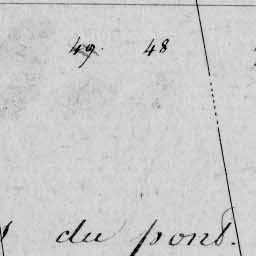 49. 48
du pont.